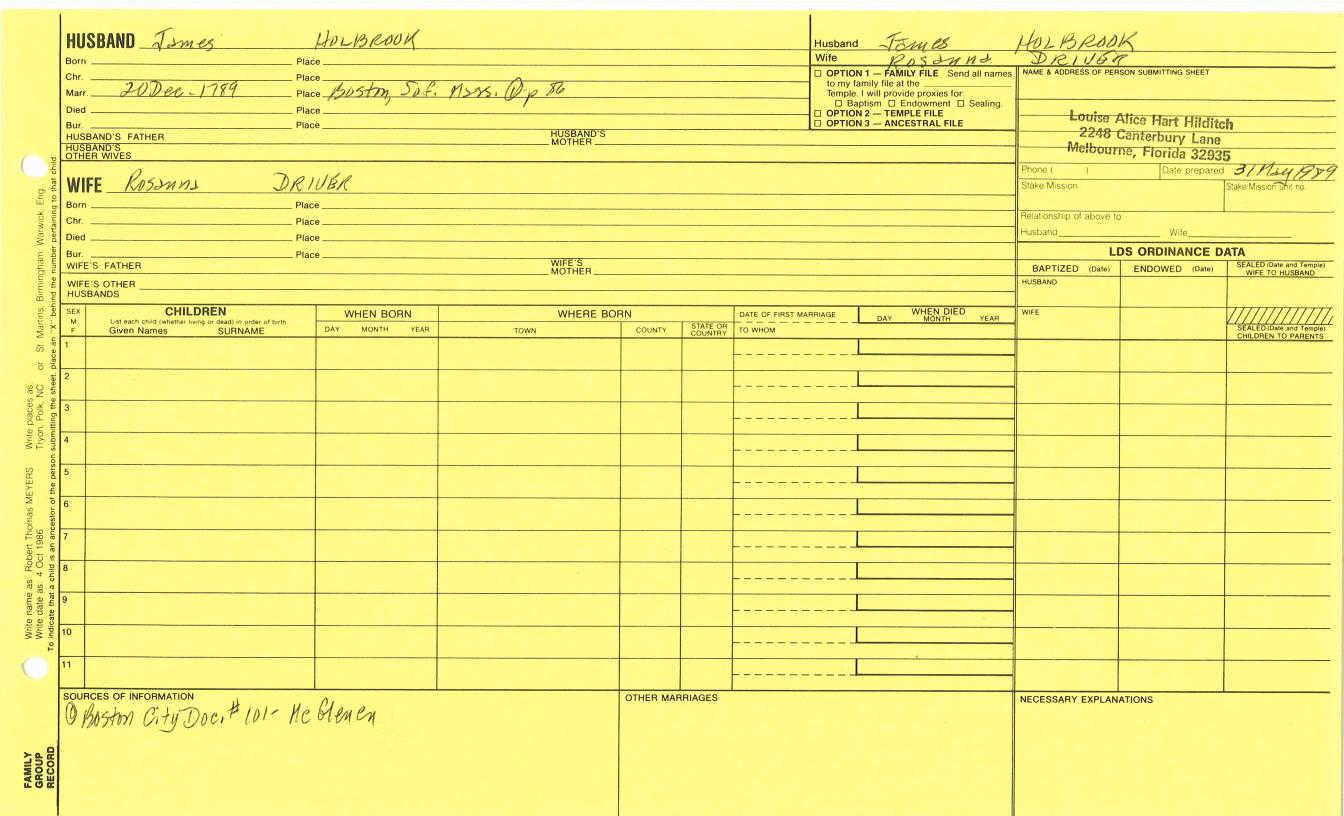 HUSBAND James HOLBROOK
Born Place
Chr. Place
Marr. 20 Dec. 1789 Place Boston, Suf. Mass. ① p 86
Died Place
Bur. Place
HUSBAND'S FATHER HUSBAND'S MOTHER
HUSBAND'S OTHER WIVES
Husband James HOLBROOK
Wife Rosanna DRIVER
☐ OPTION 1 — FAMILY FILE Send all names
to my family file at the
Temple. I will provide proxies for:
☐ Baptism ☐ Endowment ☐ Sealing.
☐ OPTION 2 — TEMPLE FILE
☐ OPTION 3 — ANCESTRAL FILE
NAME & ADDRESS OF PERSON SUBMITTING SHEET
Louise Alice Hart Hilditch
2248 Canterbury Lane
Melbourne, Florida 32935
Phone ( ) Date prepared 31 May 1989
Stake Mission Stake Mission unit no.
Relationship of above to
Husband Wife
WIFE Rosanna DRIVER
Born Place
Chr. Place
Died Place
Bur. Place
WIFE'S FATHER WIFE'S MOTHER
WIFE'S OTHER HUSBANDS
LDS ORDINANCE DATA
BAPTIZED (Date) ENDOWED (Date) SEALED (Date and Temple) WIFE TO HUSBAND
HUSBAND
WIFE
SEALED (Date and Temple) CHILDREN TO PARENTS
SEX M F
CHILDREN
List each child (whether living or dead) in order of birth
Given Names SURNAME
WHEN BORN
DAY MONTH YEAR
WHERE BORN
TOWN COUNTY STATE OR COUNTRY
DATE OF FIRST MARRIAGE
TO WHOM
WHEN DIED
DAY MONTH YEAR
1
2
3
4
5
6
7
8
9
10
11
SOURCES OF INFORMATION
① Boston City Doc. # 101- McGlenen
OTHER MARRIAGES
NECESSARY EXPLANATIONS
Write name as: Robert Thomas MEYERS Write places as: Tryon, Polk, NC or St. Martins, Birmingham, Warwick, Eng.
Write date as: 4 Oct 1986
To indicate that a child is an ancestor of the person submitting the sheet, place an "X" behind the number pertaining to that child.
FAMILY
GROUP
RECORD